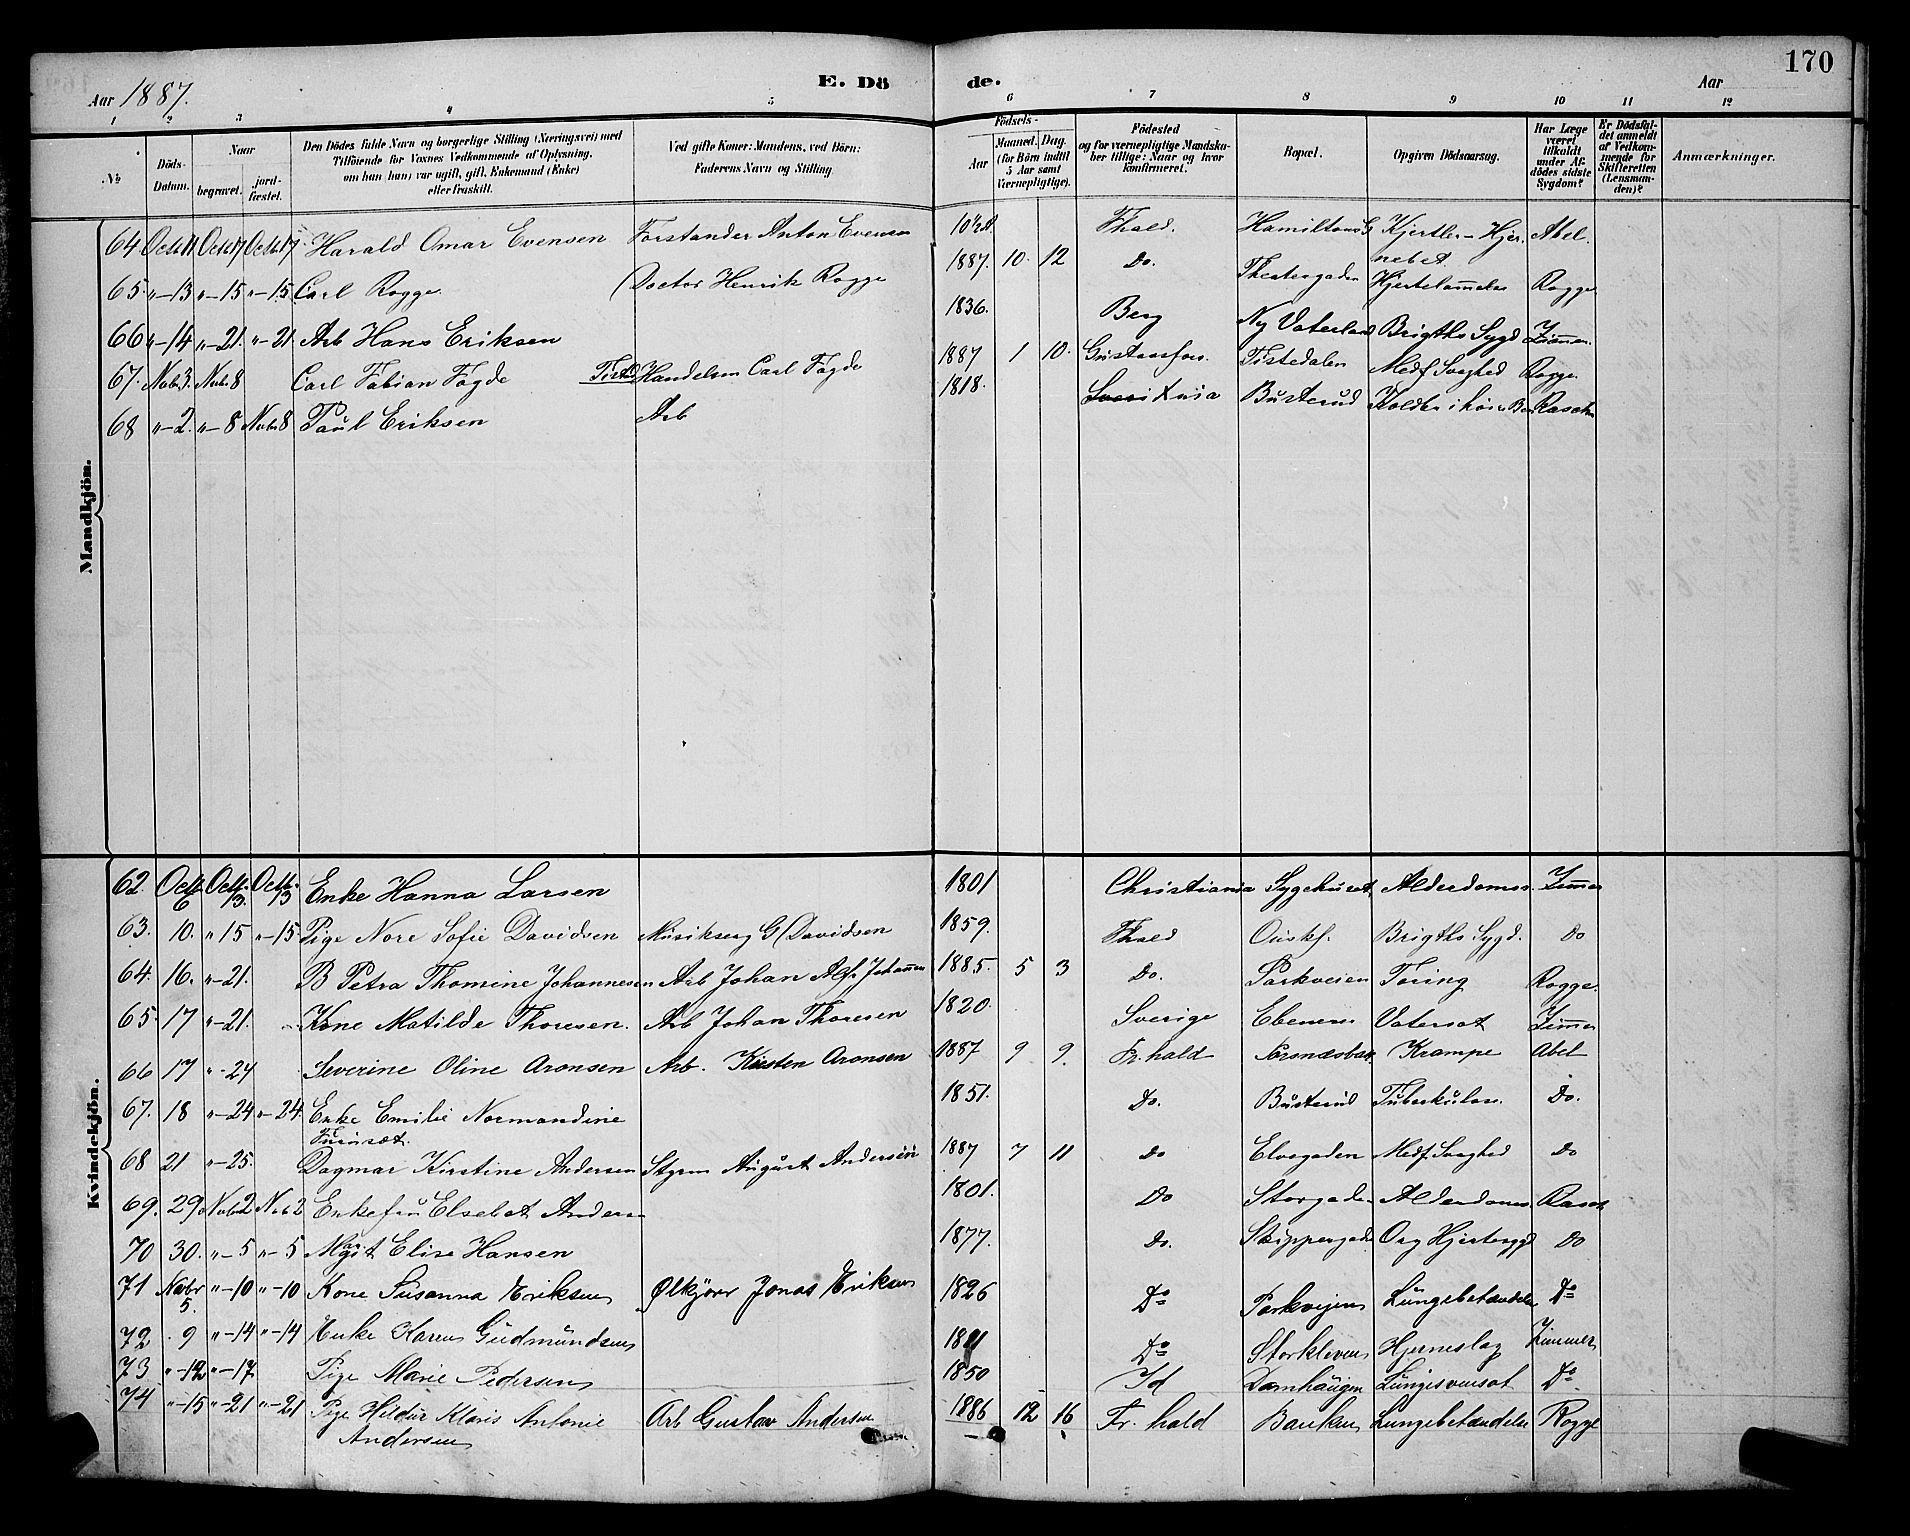 170
Aar 1887.
E. Dö
de.
Aar
1 2 3 4 5 6 7 8 9 10 11 12
№
Döds-Datum.
Naar
begravet.
jord-fæstet.
Den Dödes fulde Navn og borgerlige Stilling (Næringsvei) med
Tilföiende for Voxnes Vedkommende af Oplysning,
om han (hun) var ugift, gift, Enkemand (Enke)
eller fraskilt.
Ved gifte Koner: Mandens, ved Börn:
Faderens Navn og Stilling.
Födsels-
Aar
Maaned. Dag.
(for Börn indtil
5 Aar samt
Værnepligtige).
Födested
og for værnepligtige Mandska-
ber tillige: Naar og hvor
konfirmeret.
Bopæl.
Opgiven Dödsaarsag.
Har Læge
været
tilkaldt
under Af-
dödes sidste
Sygdom?
Er Dödsfal-
det anmeldt
af Vedkom-
mende for
Skifteretten
(Lensman-
den)?
Anmærkninger.
Mandkjön.
64. Octbr 11 Octbr 17 Octbr 17 Harald Omar Evensen Forstander Anton Evensen Fhald. Kjertler - Hjer- Abel.
nebet.
65. " - 13 " - 15 " - 15 Carl Rogge. Doctor Henrik Rogge 1887. 10. 12 Do. Theatergaden Hjertelamelse Rogge
66 " - 14 " - 21. " - 21. Arb Hans Eriksen 1836. Berg Ny Vaterland Brigths Sygd Zimmer.
67. Nvbr 3. Nvbr 8 Carl Fabian Fagde Tisted. Handelsm Carl Fagde 1887 1 10. Tistedalen Medf Svaghed Rogge.
68 " - 2. " - 8 Nvbr 8 Paul Eriksen Arb 1818. Busterud Rasch
Kvindekjön.
62. Octbr 6 Octbr. 13. Octbr. 13 Enke Hanna Larsen 1801 Christiania Sygehuset Alderdomss. Zimmer
63. 10. " 15 " - 15. Pige Nore Sofie Davidsen Musikserg G Davidsen 1859. Fhald Ouskf. Brigths Sygd. Do
64. 16. " - 21. B Petra Thomine Johannesen Arb Johan Alf. Johannesen 1885. 5 3 Do. Parkveien Tæring Rogge.
65. 17 " - 21. Kone Matilde Thoresen. Arb Johan Thoresen 1820. Sverige Ebeneser Vatersot Zimmer
66 17 " - 24 Severine Oline Aronsen Arb. Kirsten Aronsen 1887 9 9. Fr. hald Krampe Abel
67. 18 " - 24 " - 24. Enke Emilie Normandine 1851. Do. Busterud Tuberkulose. Do.
Furuset.
68 21 " - 25. Dagmar Kirstine Andersen Styrm August Andersen 1887 7 11 Do Elvegaden Medf. Svaghed Do
69. 29 Nvbr 2 Nvbr 2 Enkefru Elsebet Anders 1801. Do Storgaden Alderdoms. Rasch
70 30. " - 5 " - 5 Margit Elise Hansen 1877. Do. Skippergade Org Hjertesygd Do
71 Novbr 5. " - 10 " - 10 Kone Susanna Eriksen Ølkjører Jonas Eriksen 1826 Do Parkvejen Lungebetændelse Do
72 9 " - 14 " - 14 Enke Karen Gudmundsen Do Storkleven Hjerneslag Zimmer
73 " - 12 " - 17 Pige Marie Pedersen 1850 Id Damhaugen Lungesvinsot Do
74 " - 15 " - 21 " - 21 Pige Hildur Klaris Antonie Arb Gustav Andersen 1886 12 16 Fr. hald Banken Lungebetændelse Rogge
Andersen